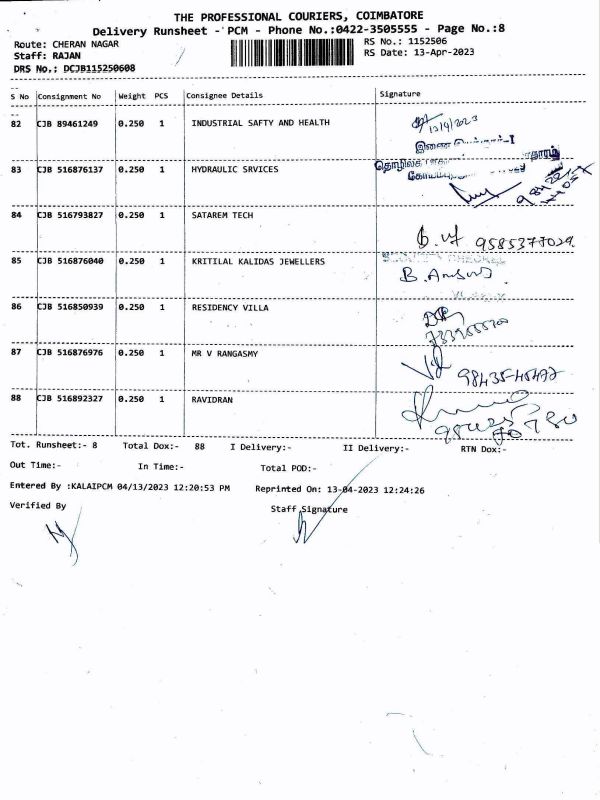 THE PROFESSIONAL COURIERS, COIMBATORE
Delivery Runsheet - PCM - Phone No.:0422-3505555 - Page No.:8
Route: CHERAN NAGAR RS No.: 1152506
Staff: RAJAN RS Date: 13-Apr-2023
DRS No.: DCJB115250608
S No Consignment No Weight PCS Consignee Details Signature
82 CJB 89461249 0.250 1 INDUSTRIAL SAFTY AND HEALTH
83 CJB 516876137 0.250 1 HYDRAULIC SRVICES
84 CJB 516793827 0.250 1 SATAREM TECH
85 CJB 516876040 0.250 1 KRITILAL KALIDAS JEWELLERS
86 CJB 516850939 0.250 1 RESIDENCY VILLA
87 CJB 516876976 0.250 1 MR V RANGASMY
88 CJB 516892327 0.250 1 RAVIDRAN
Tot. Runsheet:- 8 Total Dox:- 88 I Delivery:- II Delivery:- RTN Dox:-
Out Time:- In Time:- Total POD:-
Entered By :KALAIPCM 04/13/2023 12:20:53 PM Reprinted On: 13-04-2023 12:24:26
Verified By Staff Signature